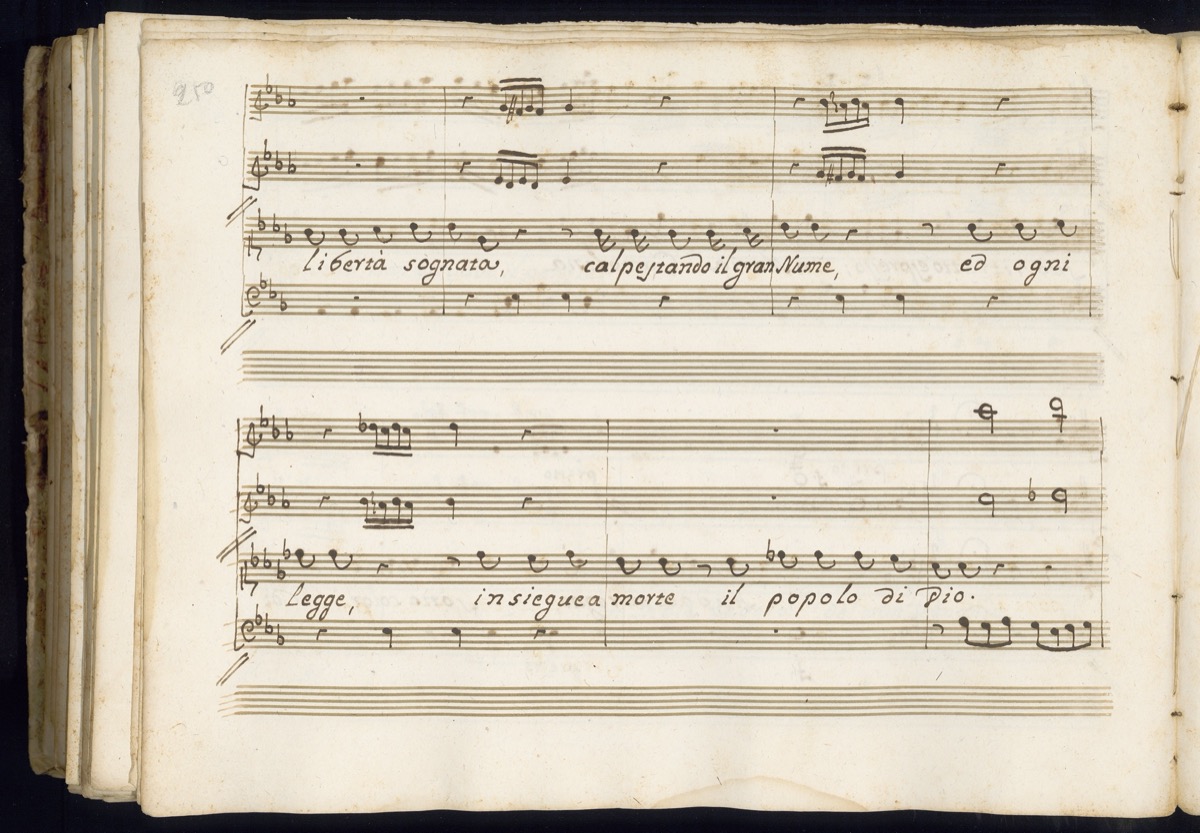 250
libertà sognata, calpestando il gran Nume, ed ogni
legge, insiegue a morte il popolo di Dio.